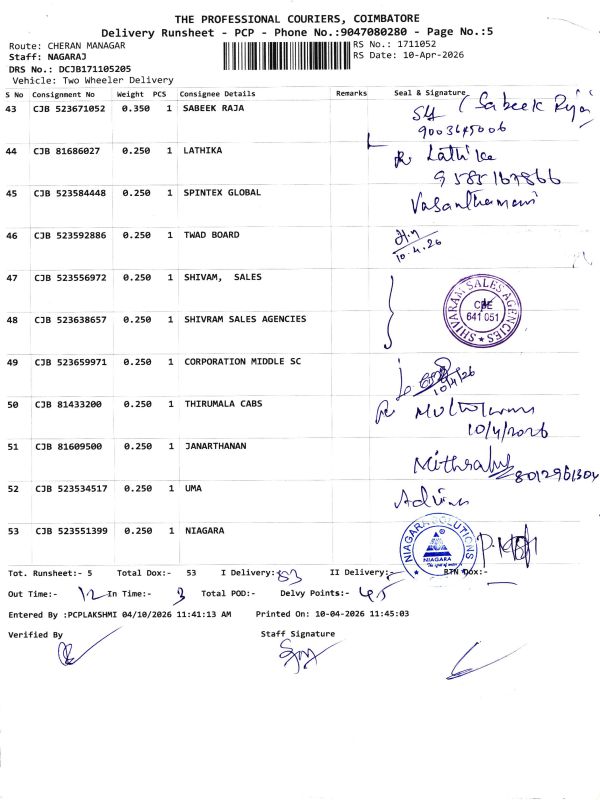 THE PROFESSIONAL COURIERS, COIMBATORE
Delivery Runsheet - PCP - Phone No.:9047080280 - Page No.:5
Route: CHERAN MANAGAR
RS No.: 1711052
Staff: NAGARAJ
RS Date: 10-Apr-2026
DRS No.: DCJB171105205
Vehicle: Two Wheeler Delivery
S No Consignment No Weight PCS Consignee Details Remarks Seal & Signature
43 CJB 523671052 0.350 1 SABEEK RAJA (Sabeek Raja
9003645006
44 CJB 81686027 0.250 1 LATHIKA Lathika
9585167866
45 CJB 523584448 0.250 1 SPINTEX GLOBAL Vasanthamani
46 CJB 523592886 0.250 1 TWAD BOARD
10.4.26
47 CJB 523556972 0.250 1 SHIVAM, SALES
SHIVARAM SALES AGENCIES
CBE
641 051
48 CJB 523638657 0.250 1 SHIVRAM SALES AGENCIES
49 CJB 523659971 0.250 1 CORPORATION MIDDLE SC
10/4/26
50 CJB 81433200 0.250 1 THIRUMALA CABS
10/4/2026
51 CJB 81609500 0.250 1 JANARTHANAN
8012961304
52 CJB 523534517 0.250 1 UMA
53 CJB 523551399 0.250 1 NIAGARA
NIAGARA SOLUTIONS
NIAGARA
Tot. Runsheet:- 5 Total Dox:- 53 I Delivery:- 53 II Delivery:- RTN Dox:-
Out Time:- 12 In Time:- 3 Total POD:- Delvy Points:- 45
Entered By :PCPLAKSHMI 04/10/2026 11:41:13 AM Printed On: 10-04-2026 11:45:03
Verified By Staff Signature